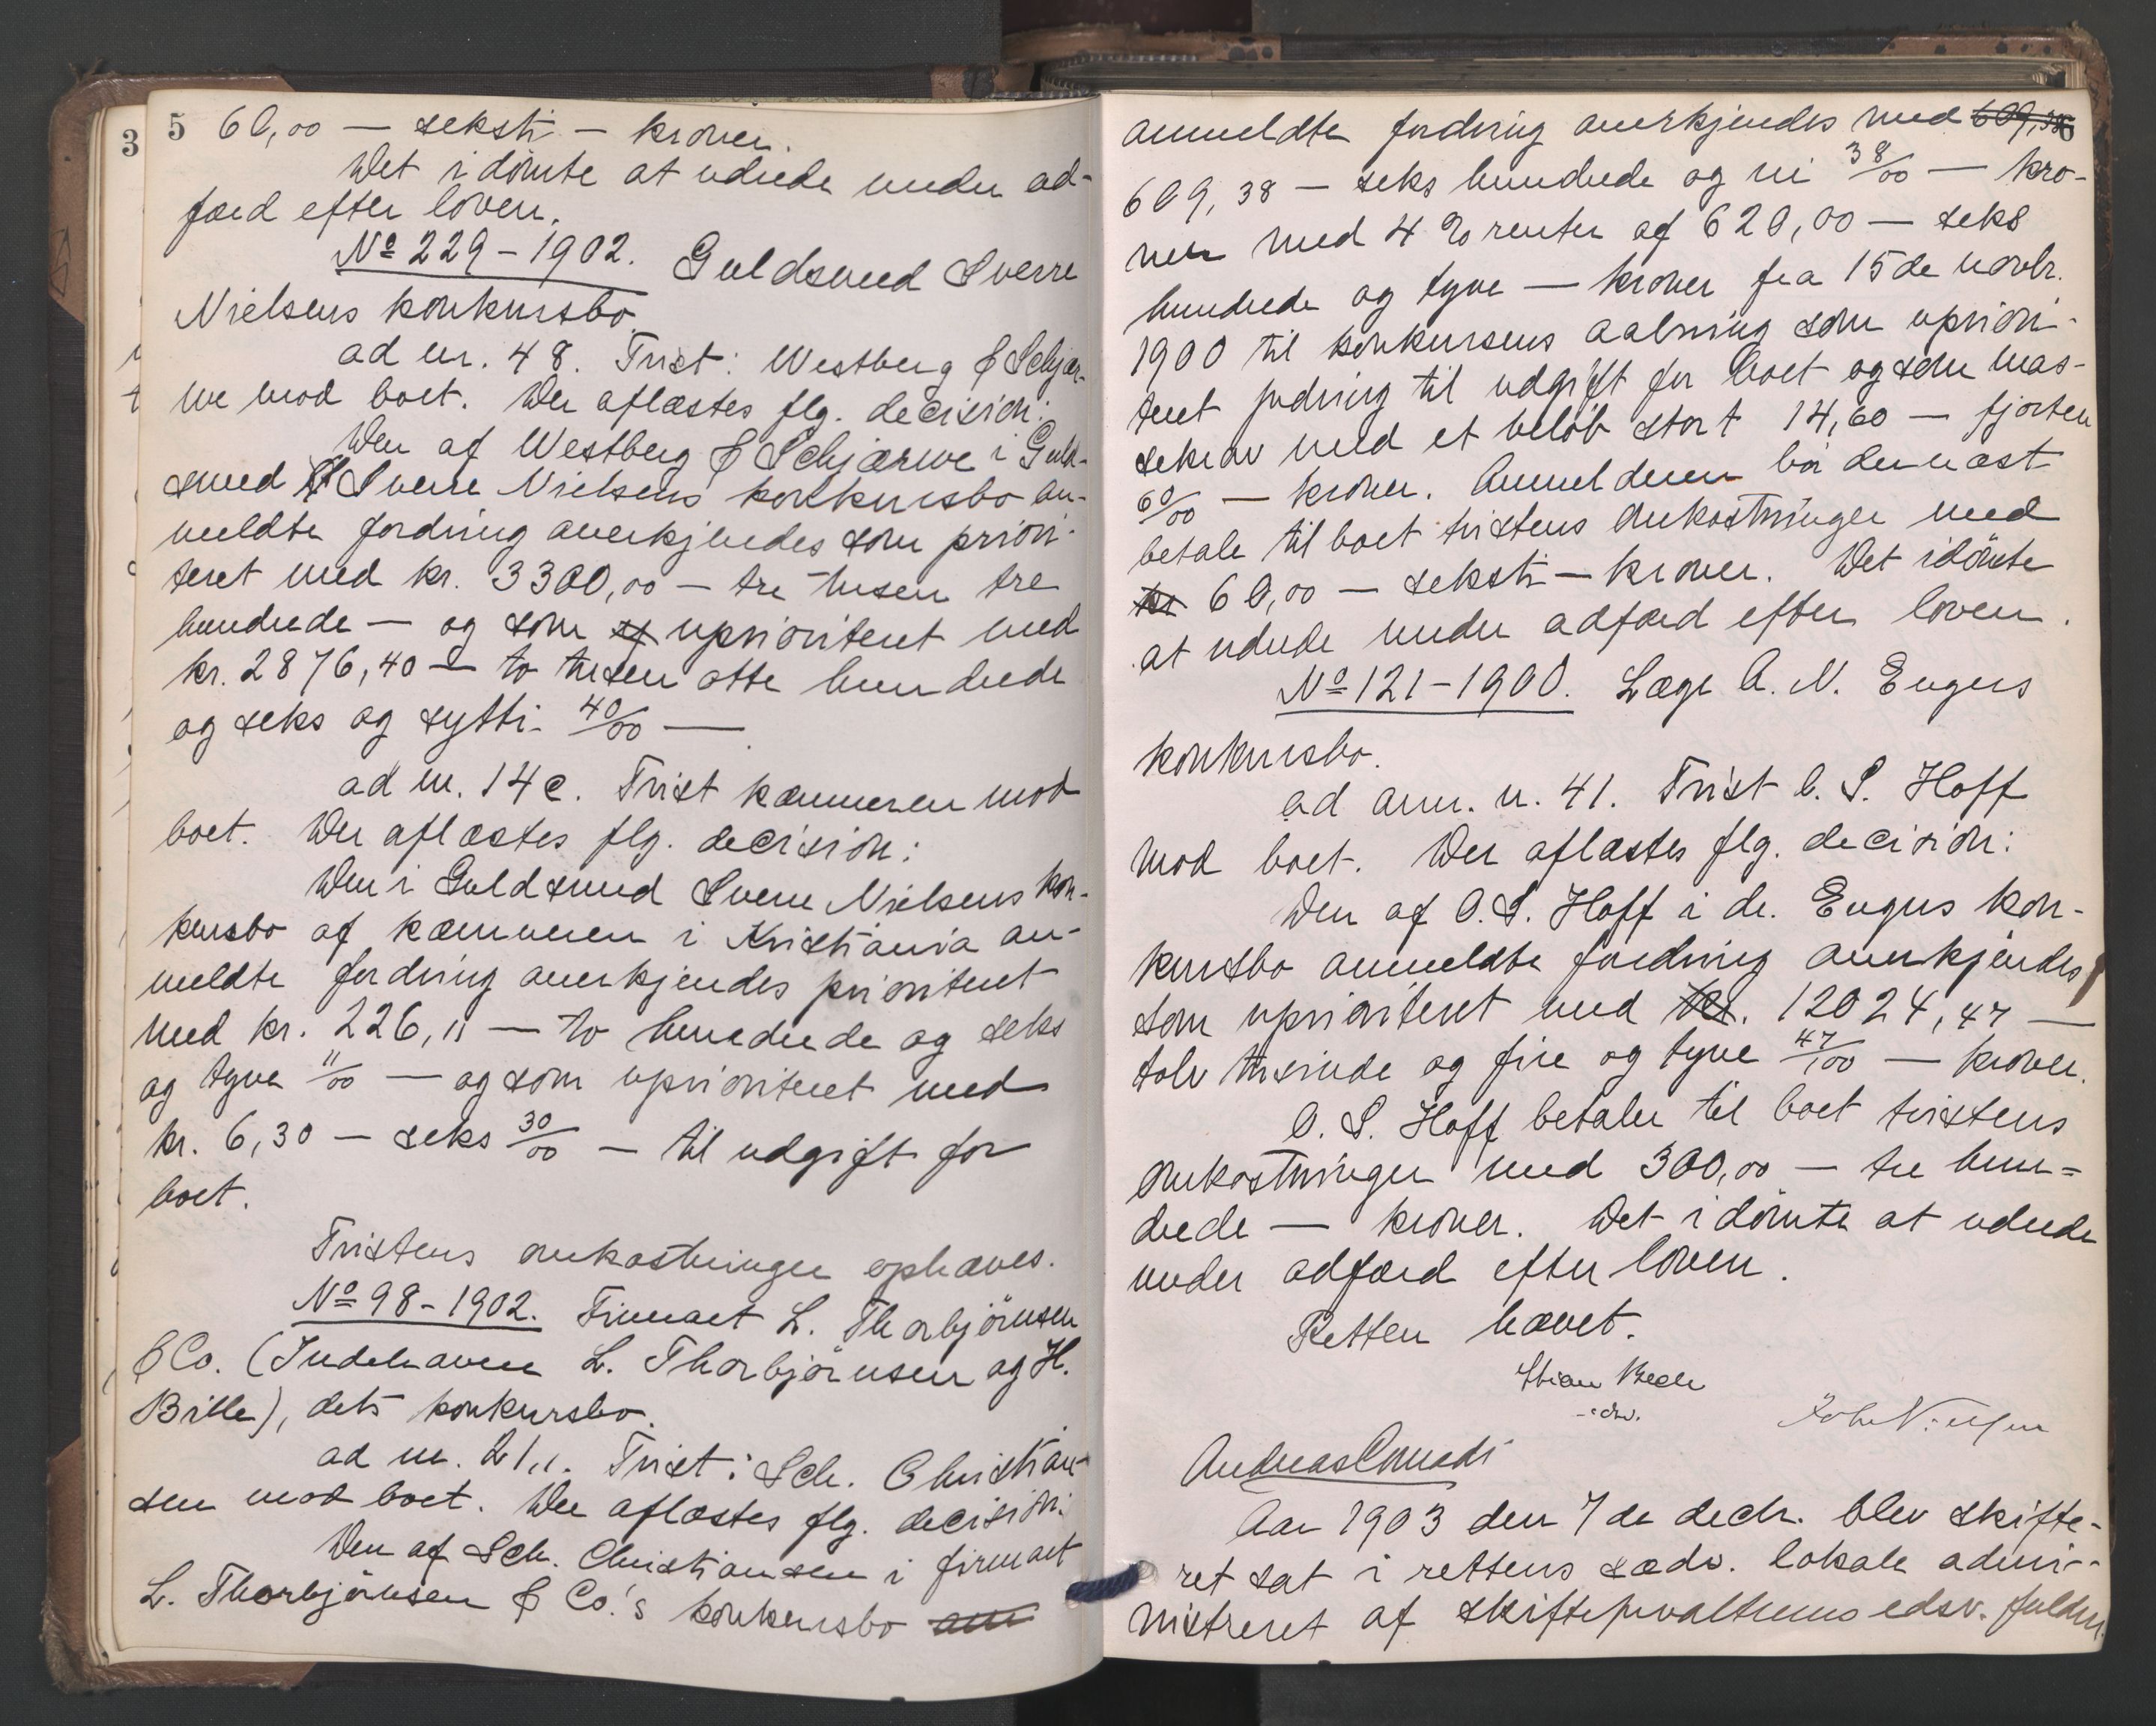 3
5
60,00 — seksti — kroner.
Det idömte at udrede under ad-
færd efter loven.
No 229 - 1902. Guldsmed Sverre
Nielsens konkursbo
ad nr. 48. Tvist: Westberg & Schjær-
we mod boet. Der aflæstes flg. decision:
Den af Westberg & Schjærwe i Guld-
smed Sverre Nielsens konkursbo an-
meldte fordring anerkjendes som priori-
teret med kr. 3300,00 — tre tusen tre
hundrede — og som uprioriteret med
kr. 2876,40 — to tusen otte hundrede
og seks og sytti 40/00 —
ad nr. 14 c. Tvist kæmneren mod
boet. Der aflæstes flg. decision:
Den i Guldsmed Sverre Nielsens kon-
kursbo af kæmneren i Kristiania an-
meldte fordring anerkjendes prioriteret
med kr. 226,11 — to hundrede og seks
og tyve 11/00 — og som uprioriteret med
kr. 6,30 — seks 30/00 — til udgift for
boet.
Tvistens omkostninger ophæves.
No 98 - 1902. Firmaet L. Thorbjörnsen
& Co. (Indehavere L. Thorbjörnsen og H.
Bille), dets konkursbo.
ad nr. 21,1. Tvist: Sch. Christian-
sen mod boet. Der aflæstes flg. decision:
Den af Sch. Christiansen i firmaet
L. Thorbjörnsen & Co.'s konkursbo an
6
anmeldte fordring anerkjendes med 609,38
609,38 — seks hundrede og ni 38/00 — kro-
ner med 4 % renter af 620,00 — seks
hundrede og tyve — kroner fra 15de novbr.
1900 til konkursens aabning som upriori-
teret fordring til udgift for boet og som mas-
sekrav med et beløb stort 14,60 — fjorten
60/00 — kroner. Anmelderen bör dernæst
betale til boet tvistens omkostninger med
kr 60,00 — seksti — kroner. Det idömte
at udrede under adfærd efter loven.
No 121 - 1900. Læge A. N. Engers
konkursbo.
ad anm. n. 41. Tvist O. S. Hoff
mod boet. Der aflæstes flg. decision:
Den af O. S. Hoff i dr. Engers kon-
kursbo anmeldte fordring anerkjendes
som uprioriteret med kr. 12024,47 —
tolv tusinde og fire og tyve 47/100 — kroner.
O. S. Hoff betaler til boet tvistens
omkostninger med 300,00 — tre hun-
drede — kroner. Det idömte at udrede
under adfærd efter loven.
Retten hævet.
Andreas Conradi
Aar 1903 den 7de decbr. blev skifte-
ret sat i rettens sædv. lokale admi-
nistreret af skifteforvalterens edsv. fuldm.